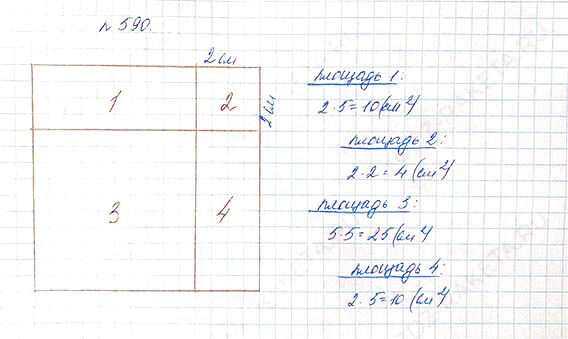 n 590.
2 см
1
2
2 см
3
4
площадь 1:
2·5=10(см²)
площадь 2:
2·2=4 (см²)
площадь 3:
5·5=25(см²)
площадь 4:
2·5=10 (см²)